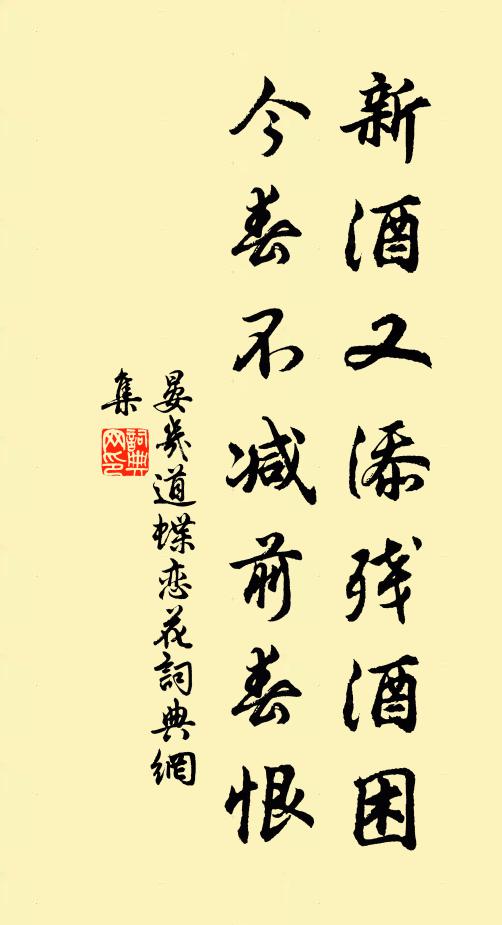 新酒又添残酒困
今春不减前春恨
晏幾道蝶恋花詞典網
集
詞典
网印